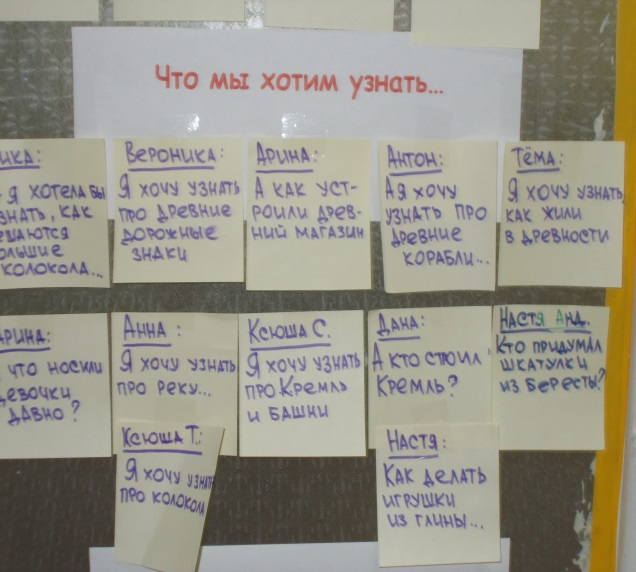 Что мы хотим узнать...
ика:
я хотела бы
знать, как
ешаются
ольшие
колокола...
Вероника:
Я хочу узнать
про древние
дорожные
знаки
Арина:
А как уст-
роили древ-
ний магазин
Антон:
А я хочу
узнать про
древние
корабли...
Тёма:
Я хочу узнать,
как жили
в древности
арина:
что носили
девочки
давно?
Анна:
Я хочу узнать
про реку...
Ксюша С.:
Я хочу узнать
про Кремль
и башни
Дана:
А кто строил
Кремль?
Настя Анд.
Кто придумал
шкатулки
из бересты?
Ксюша Т.:
Я хочу узнать
про колокола
Настя:
Как делать
игрушки
из глины...